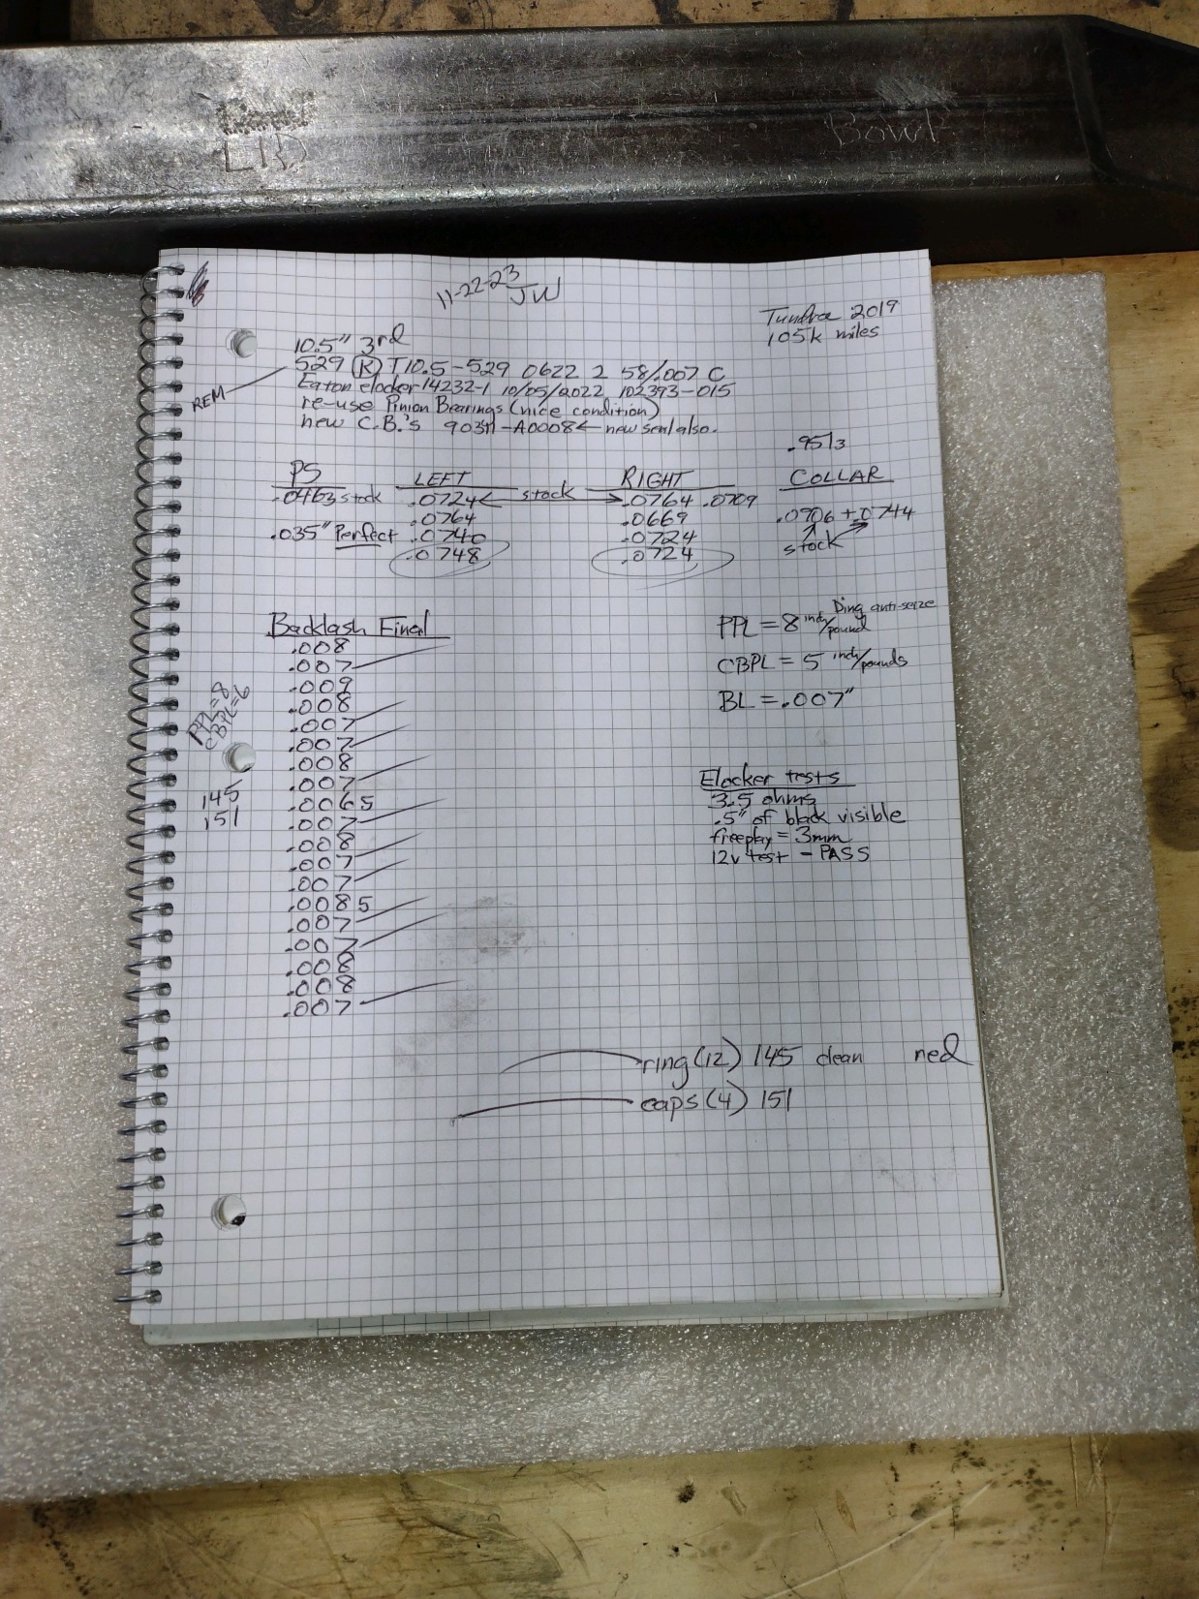 Bowl
11-22-23
JW
Tundra 2019
105k miles
10.5" 3rd
529 (R) T10.5-529 0622 2 58/.007 C
REM
Eaton elocker 14232-1 10/05/2022 102393-015
re-use Pinion Bearings (nice condition)
new C.B.'s 90311-A0008 ← new seal also.
.9513
PS LEFT RIGHT COLLAR
.0463 stock .0724 ← stock → .0764 .0709
.0764 .0669 .0906 + .0744
.035" Perfect .0740 .0724 stock
.0748 .0724
Backlash Final
.008
.007
.009
.008
.007
.007
.008
.007
.0065
.007
.008
.007
.007
.0085
.007
.007
.008
.008
.007
PPL=8
CBPL=6
145
151
Ding anti-seize
PPL = 8 inch/pound
CBPL = 5 inch/pounds
BL = .007"
Elocker tests
3.5 ohms
.5" of black visible
freeplay = 3mm
12v test - PASS
ring (12) 145 clean red
caps (4) 151